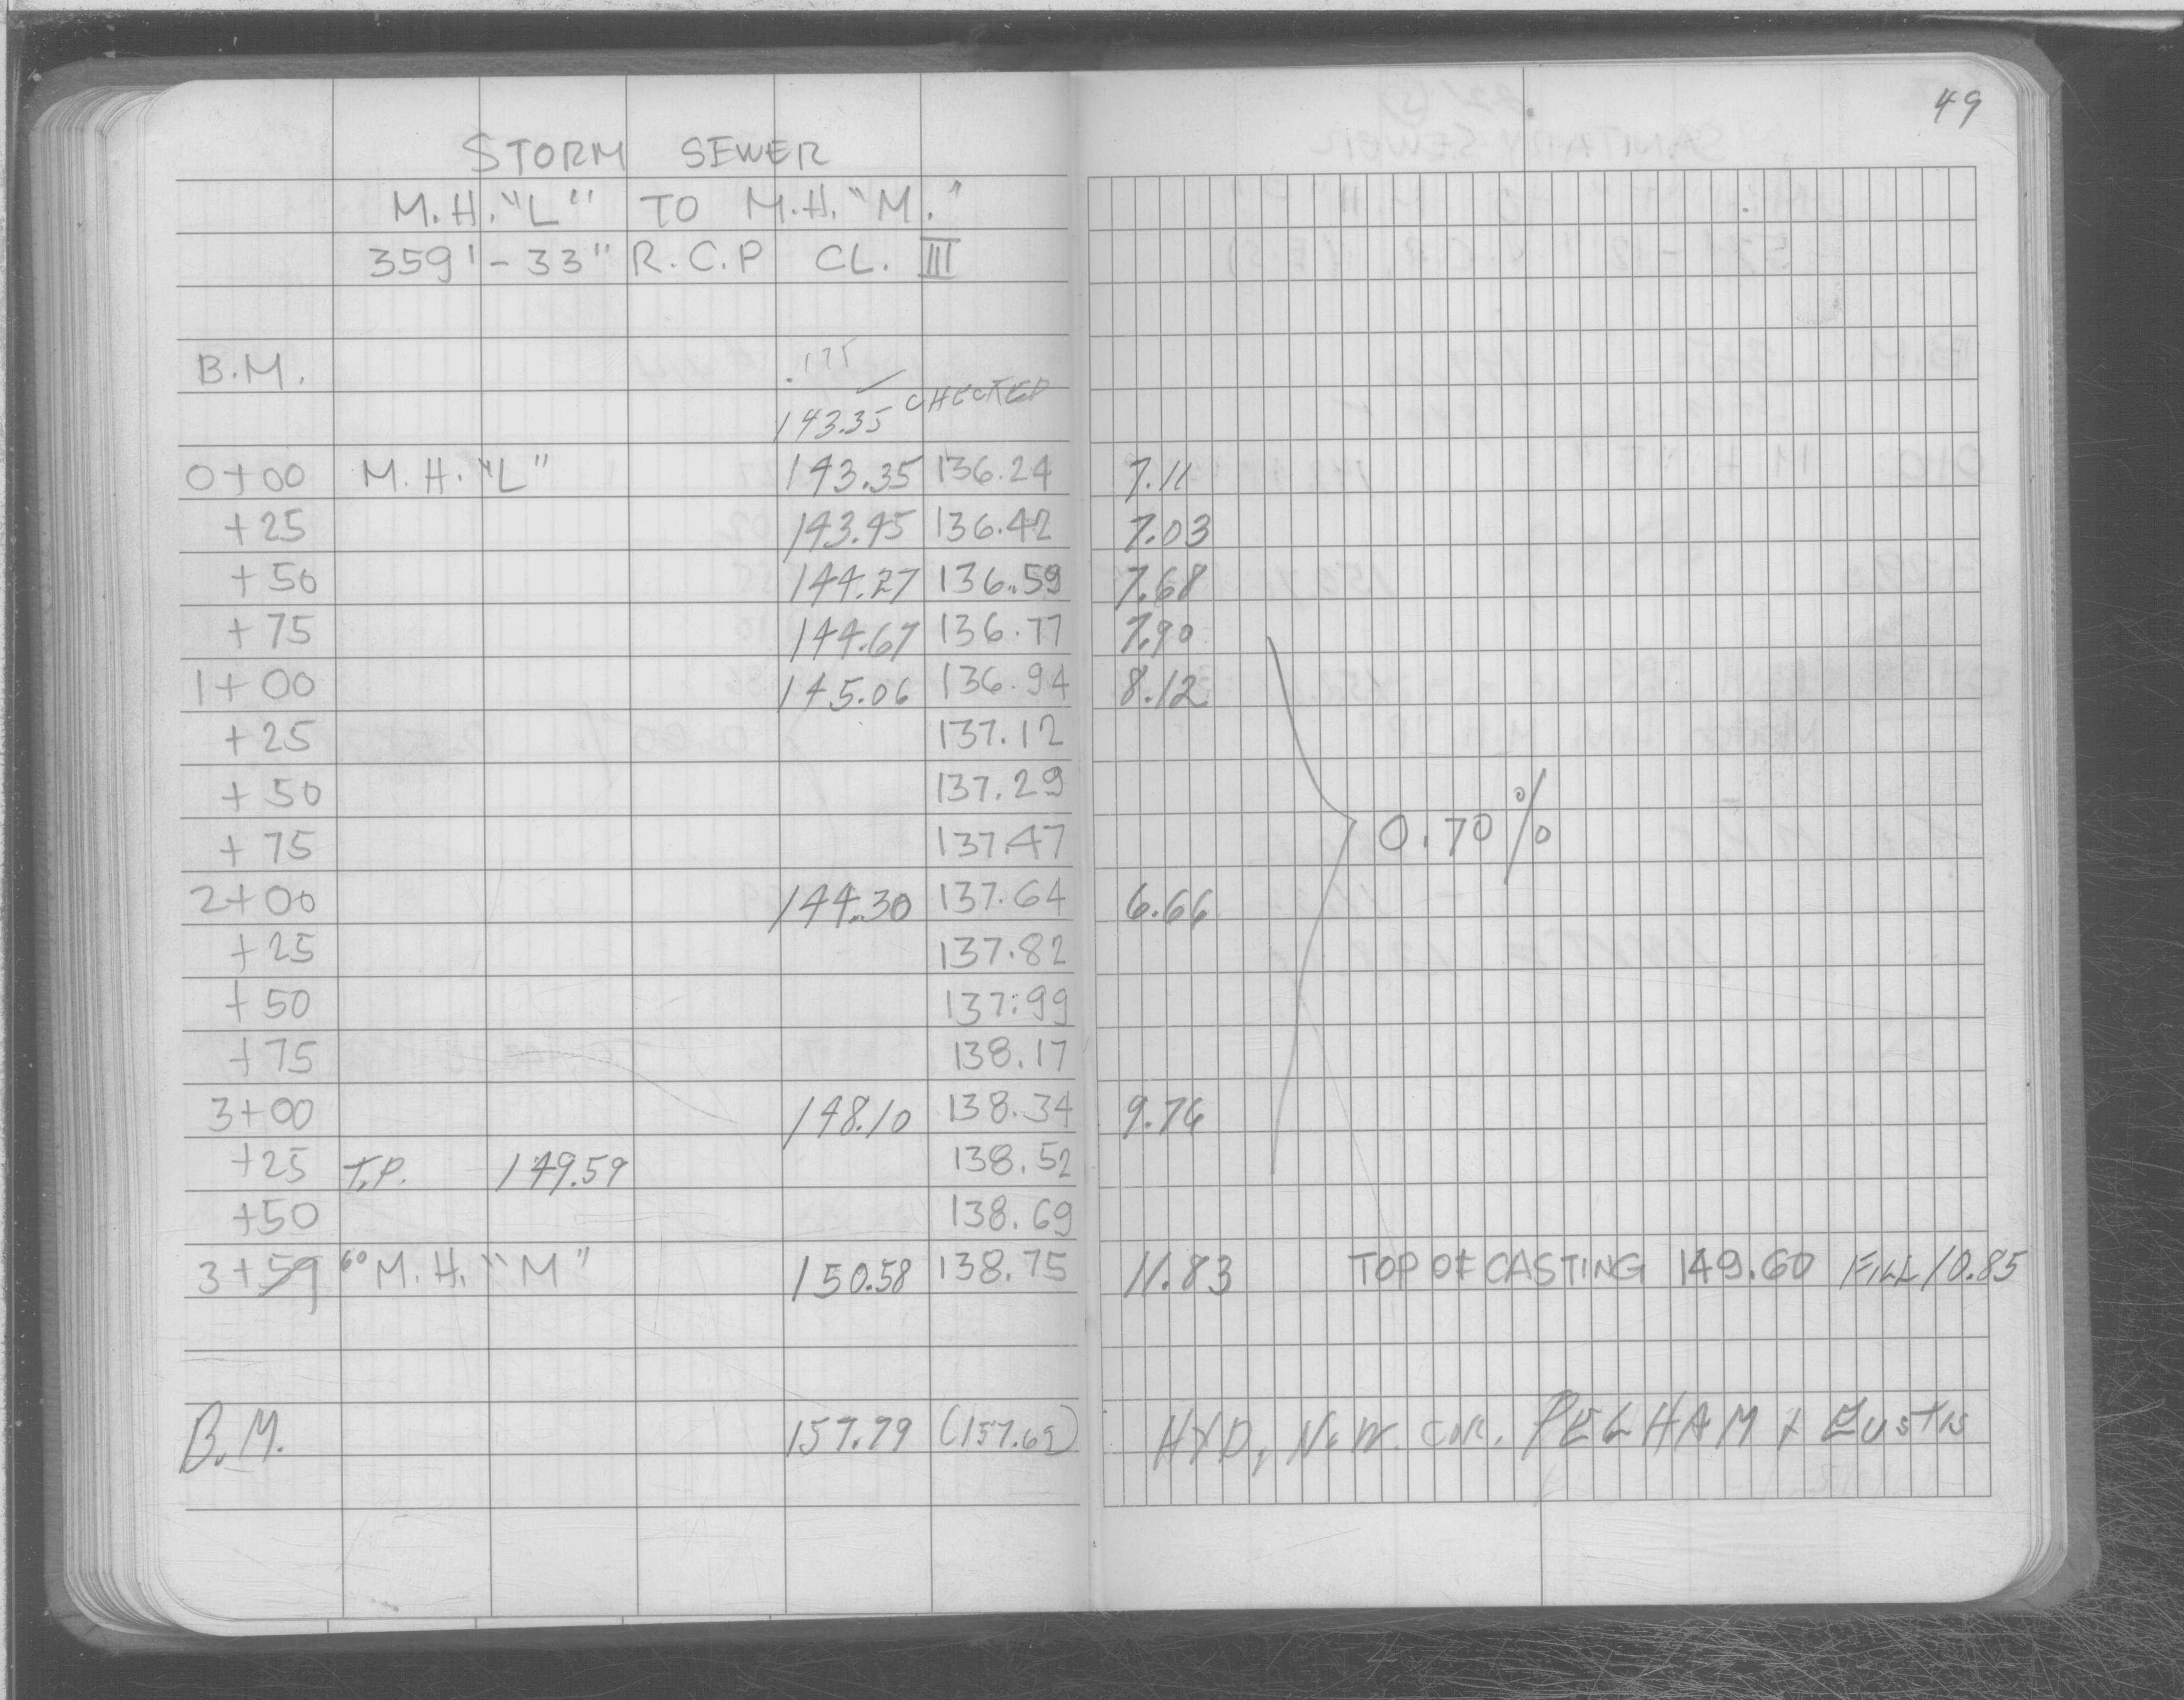 49
STORM SEWER
M.H. "L" TO M.H. "M."
359' - 33" R.C.P CL. III
B.M. .175
143.35 CHECKED
0+00 M.H. "L" 143.35 136.24 7.11
+25 143.45 136.42 7.03
+50 144.27 136.59 7.68
+75 144.67 136.77 7.90
1+00 145.06 136.94 8.12
+25 137.12
+50 137.29
+75 137.47 0.70%
2+00 144.30 137.64 6.66
+25 137.82
+50 137.99
+75 138.17
3+00 148.10 138.34 9.76
+25 T.P. 149.59 138.52
+50 138.69
3+59 60 M.H. "M" 150.58 138.75 11.83 TOP OF CASTING 149.60 FILL 10.85
B.M. 157.79 (157.69) HYD, N.W. COR. PELHAM + EUSTIS